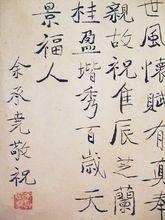 世風懷賦有真
親故祝佳辰芝蘭
桂盈堦秀百歲天
景福人
余承堯敬祝